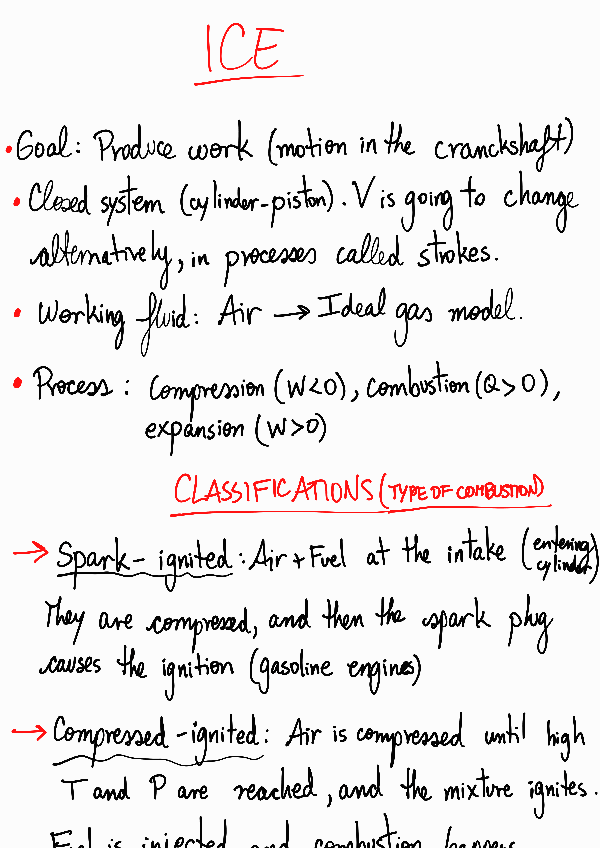 ICE
• Goal: Produce work (motion in the cranckshaft)
• Closed system (cylinder-piston). V is going to change
alternatively, in processes called strokes.
• Working fluid: Air → Ideal gas model.
• Process: Compression (W<0), combustion (Q>0),
expansion (W>0)
CLASSIFICATIONS (TYPE OF COMBUSTION)
→ Spark-ignited: Air + Fuel at the intake (entering
cylinder)
They are compressed, and then the spark plug
causes the ignition (gasoline engines)
→ Compressed-ignited: Air is compressed until high
T and P are reached, and the mixture ignites.
Fuel is injected and combustion happens